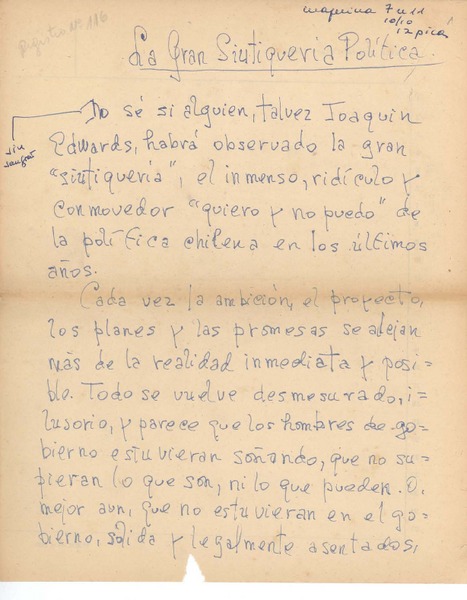 maquina 7 u 11
10/10
12 picas
Registro Nº 116
La Gran Siutiqueria Política.
No sé si alguien, talvez Joaquin
sin
sangrar
Edwards, habrá observado la gran
"siutiquería", el inmenso, ridículo y
conmovedor "quiero y no puedo" de
la política chilena en los últimos
años.
Cada vez la ambición, el proyecto,
los planes y las promesas se alejan
más de la realidad inmediata y posi=
ble. Todo se vuelve desmesurado, i=
lusorio, y parece que los hombres de go=
bierno estuvieran soñando, que no su=
pieran lo que son, ni lo que pueden. O,
mejor aun, que no estuvieran en el go=
bierno, sólida y legalmente asentados,